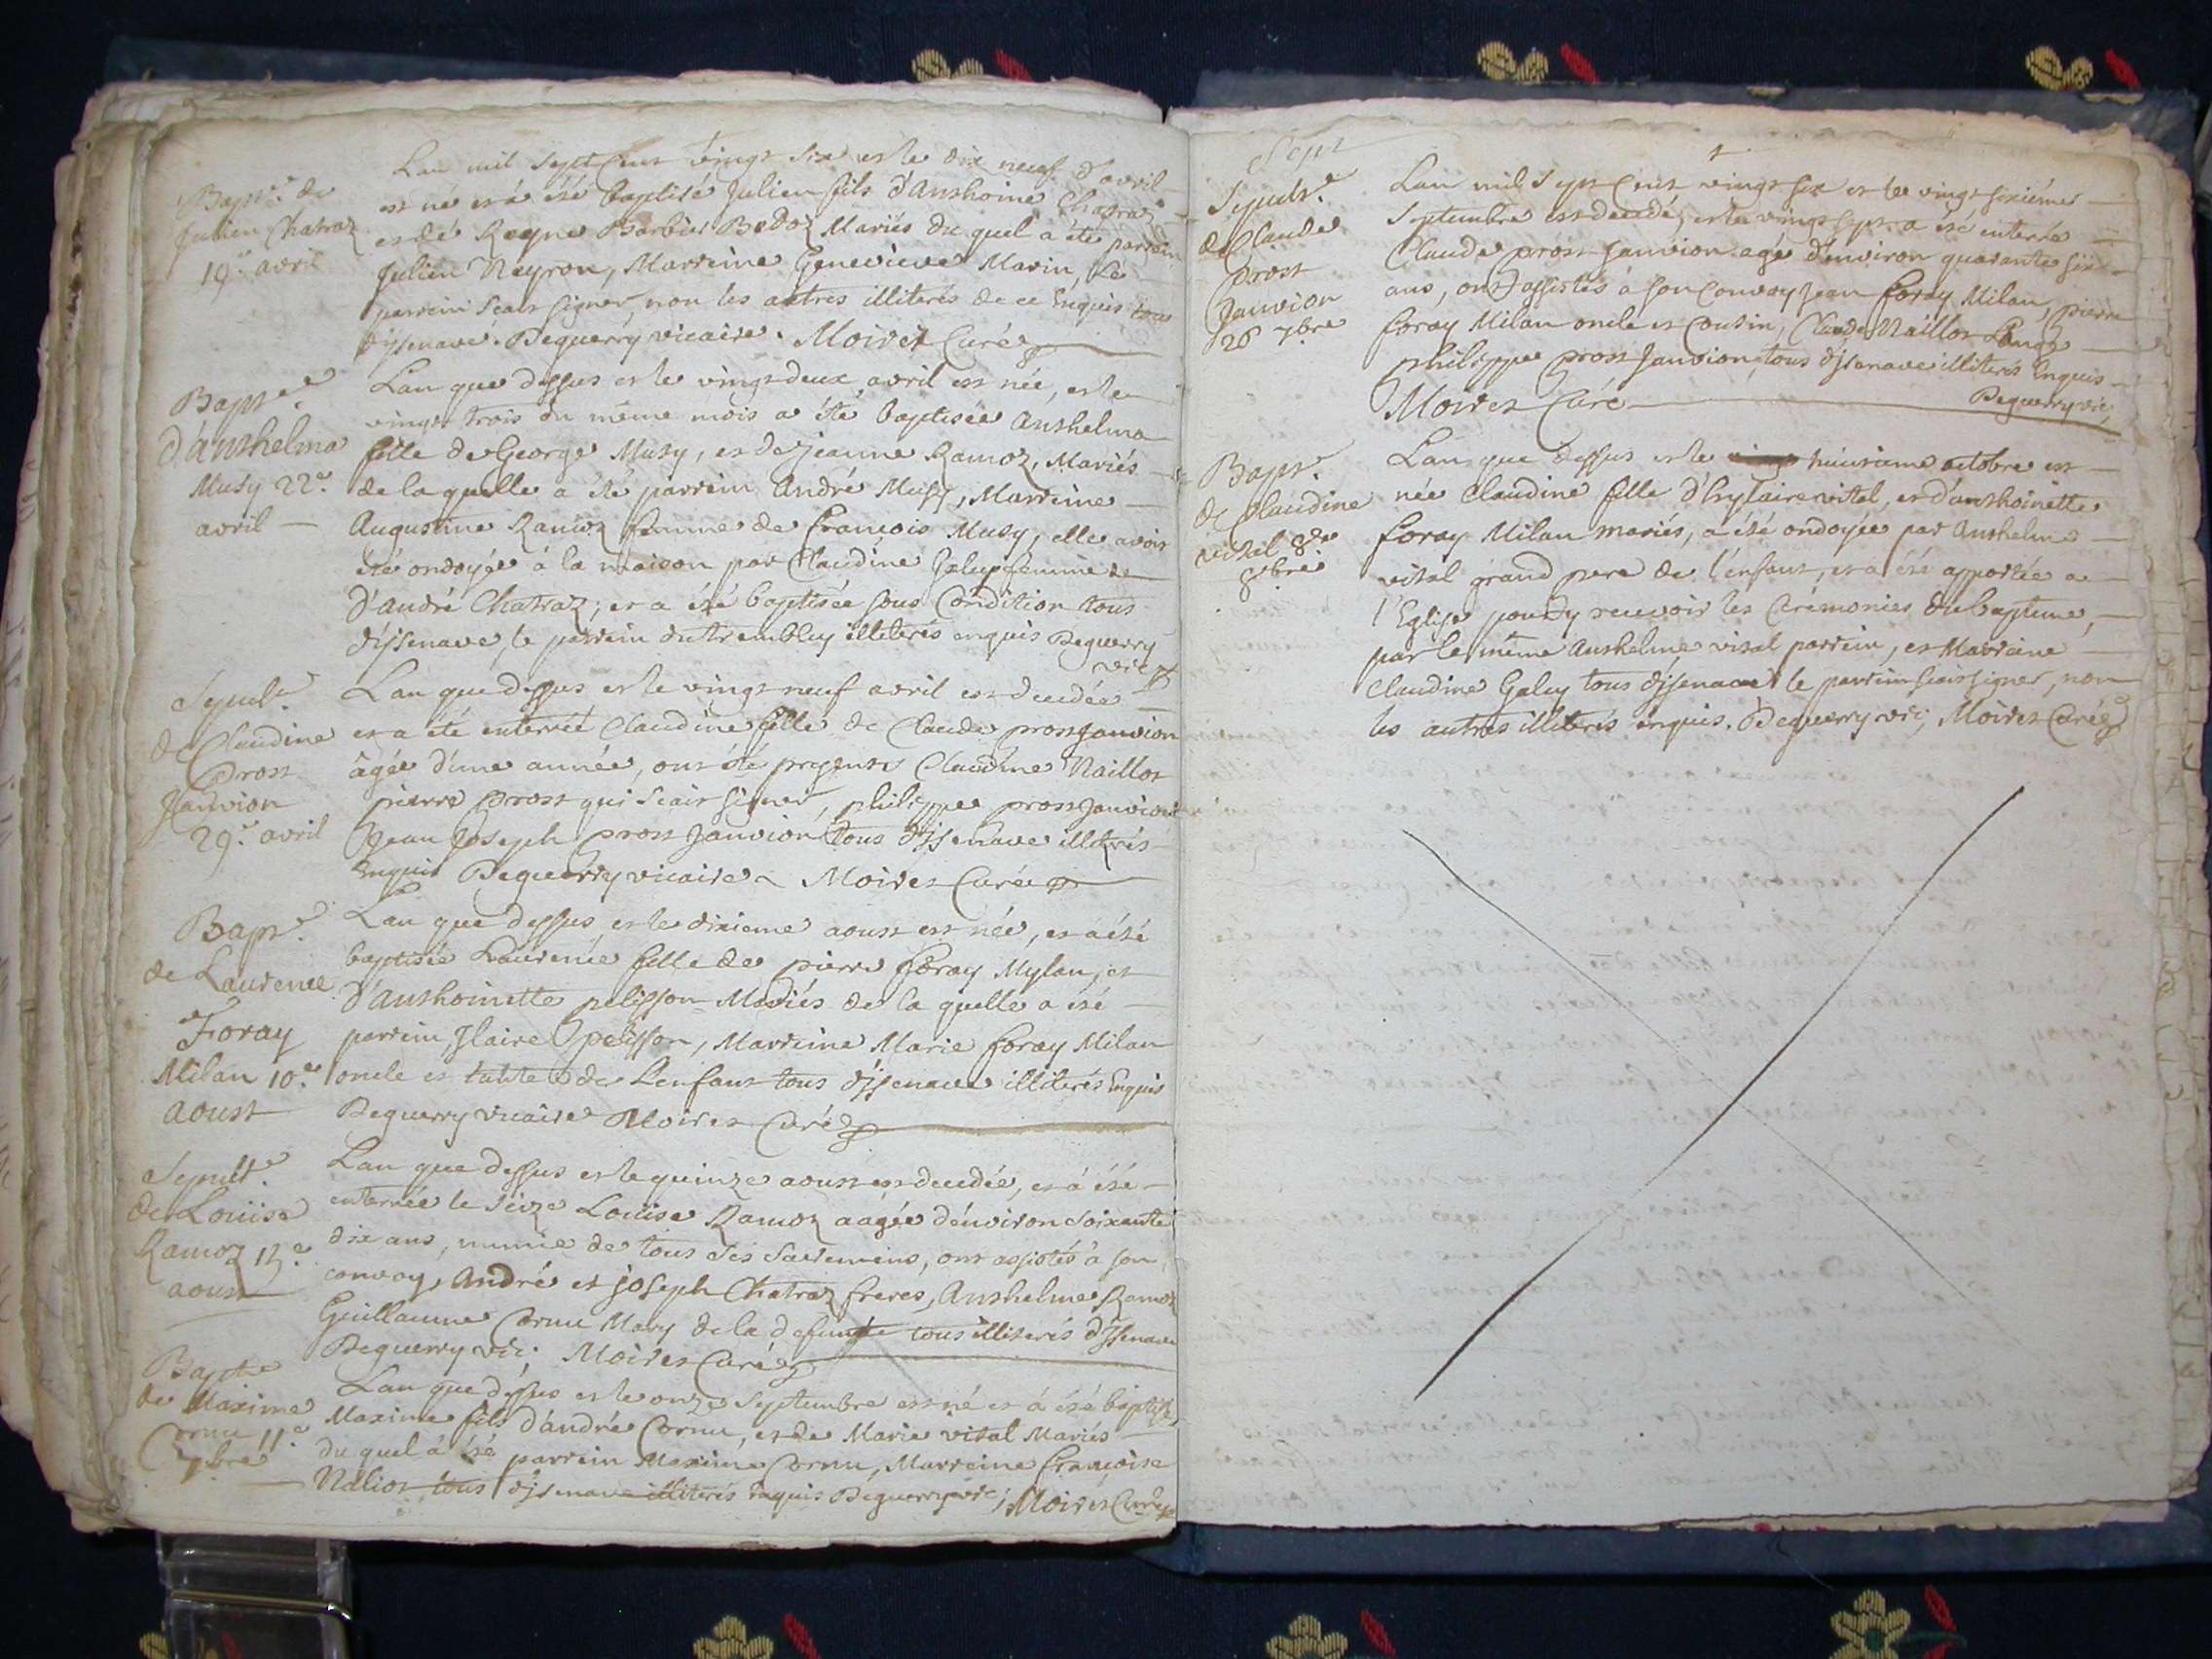 Bapt.e de
Julien Chatraz
19.e avril
Lan mil sept Cent vingt six et le dix neuf d'avril
est né et a été baptisé Julien fils d'Anthoine Chatraz
et de Reyne Barbier Bedoz Mariés du quel a été parrein
Julien Neyron, Marreine Genevieve Marin, Le
parrein scait signer, non les autres illiterés de ce Enquis tous
d'jsenave. Deguerry vicaire. Moiret Curé
Bapt.e
d'anthelma
Musy 22.e
avril
Lan que dessus et le vingt deux avril est née, et le
vingt trois du même mois a été baptisée Anthelma
fille de George Musy, et de jeanne Ramoz, Mariés
de la quelle a été parrein André Musy, Marreine
Augustine Ramoz femme de françois Musy, elle avoit
été ondoyée à la maison par Claudine Galey femme
D'andré Chatraz; et a été baptisée sous Condition tous
d'jsenave, le parrein du tremblay illiterés enquis Deguerry
vic
Sepult.e
de Claudine
Prost
Janvion
29.e avril
Lan que dessus et le vingt neuf avril est decedée
et a été enterrée Claudine fille de Claude prost Janvion
âgée d'une année, ont été presents Claudine Naillot
pierre prost qui scait signer, philippe prost Janvion
Jean Joseph prost Janvion tous d'jsenave illiterés
Enquis Deguerry vicaire Moiret Curé
Bapt.e
de Laurence
Foray
Milan 10.e
aoust
Lan que dessus et le dixieme aoust est née, et a été
baptisée Laurence fille de pierre foray Mylan, et
d'Anthoinette pelisson Mariés de la quelle a été
parrein Jlaire pelisson, Marreine Marie foray Milan
oncle et tante de Lenfant tous d'jsenave illiterés Enquis
Deguerry vicaire Moiret Curé
Sepult.e
de Louise
Ramoz 15.e
aoust
Lan que dessus et le quinze aoust est decedée, et à été
enterrée le seize Louise Ramoz aagée d'environ soixante
dix ans, munie de tous ses sacremens, ont assistés à son
convoy, André et joseph Chatraz freres, Anthelme Ramoz
Guillaume Cornu Mary de la defunte tous illiterés d'Jsenave
Deguerry vic; Moiret Curé
Bapt.e
de Maxime
Cornu 11.e
7bre
Lan que dessus et le onze Septembre est né et à été baptisé
Maxime fils d'andré Cornu, et de Marie vital Mariés
du quel à été parrein Maxime Cornu, Marreine françoise
tous d'jsenave illiterés Enquis Deguerry vic; Moiret Curé
Sept
Sepult.e
de Claude
Prost
Janvion
26 7bre
Lan mil sept Cent vingt six et le vingt sixiéme
Septembre est decedé, et le vingt sept a été enterré
Claude prost Janvion agé d'environ quarante six
ans, ont assistés à son Convoy jean foray Milan, pierre
foray Milan oncle et Cousin, Claude Naillot
philippe prost Janvion, tous d'jsenave illiterés Enquis
Moiret Curé Deguerry vic;
Bapt.e
de Claudine
vital 8.e
8bre
Lan que dessus et le huitieme octobre est
née Claudine fille d'hylaire vital, et d'anthoinette
foray Milan mariés, a été ondoyée par Anthelme
vital grand pere de l'enfant, et a été apportée a
l'Eglise pour y recevoir les Cérémonies du baptême,
par le même Anthelme vital parrein, et Marreine
Claudine Galey tous d'jsenave le parrein scait signer, non
les autres illiterés enquis. Deguerry vic; Moiret Curé